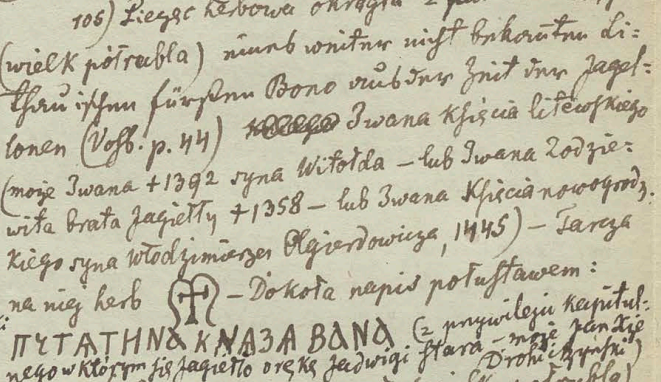 105) Pieczęć herbowa okrągła z
(wielk półrubla) eines weiter nicht bekannten Li=
thauischen fürsten Bono aus der Zeit der Jagel=
lonen (Vossb. p. 44) Iwana Księcia litewskiego
(może Iwana +1392 syna Witołda – lub Iwana Zodzie=
wita brata Jagiełły +1358 – lub Iwana Księcia nowogrodz.
kiego syna Włodzimierza Olgierdowicza, 1445) – Tarcza
na niej herb – Dokoła napis półustawem:
ПЧТАТНИА КNАЗА ВАNА (z przywileju Kapitul-
nego w którym się Jagiełło o rękę Jadwigi stara – może Jan Xże
Drohiczyński)